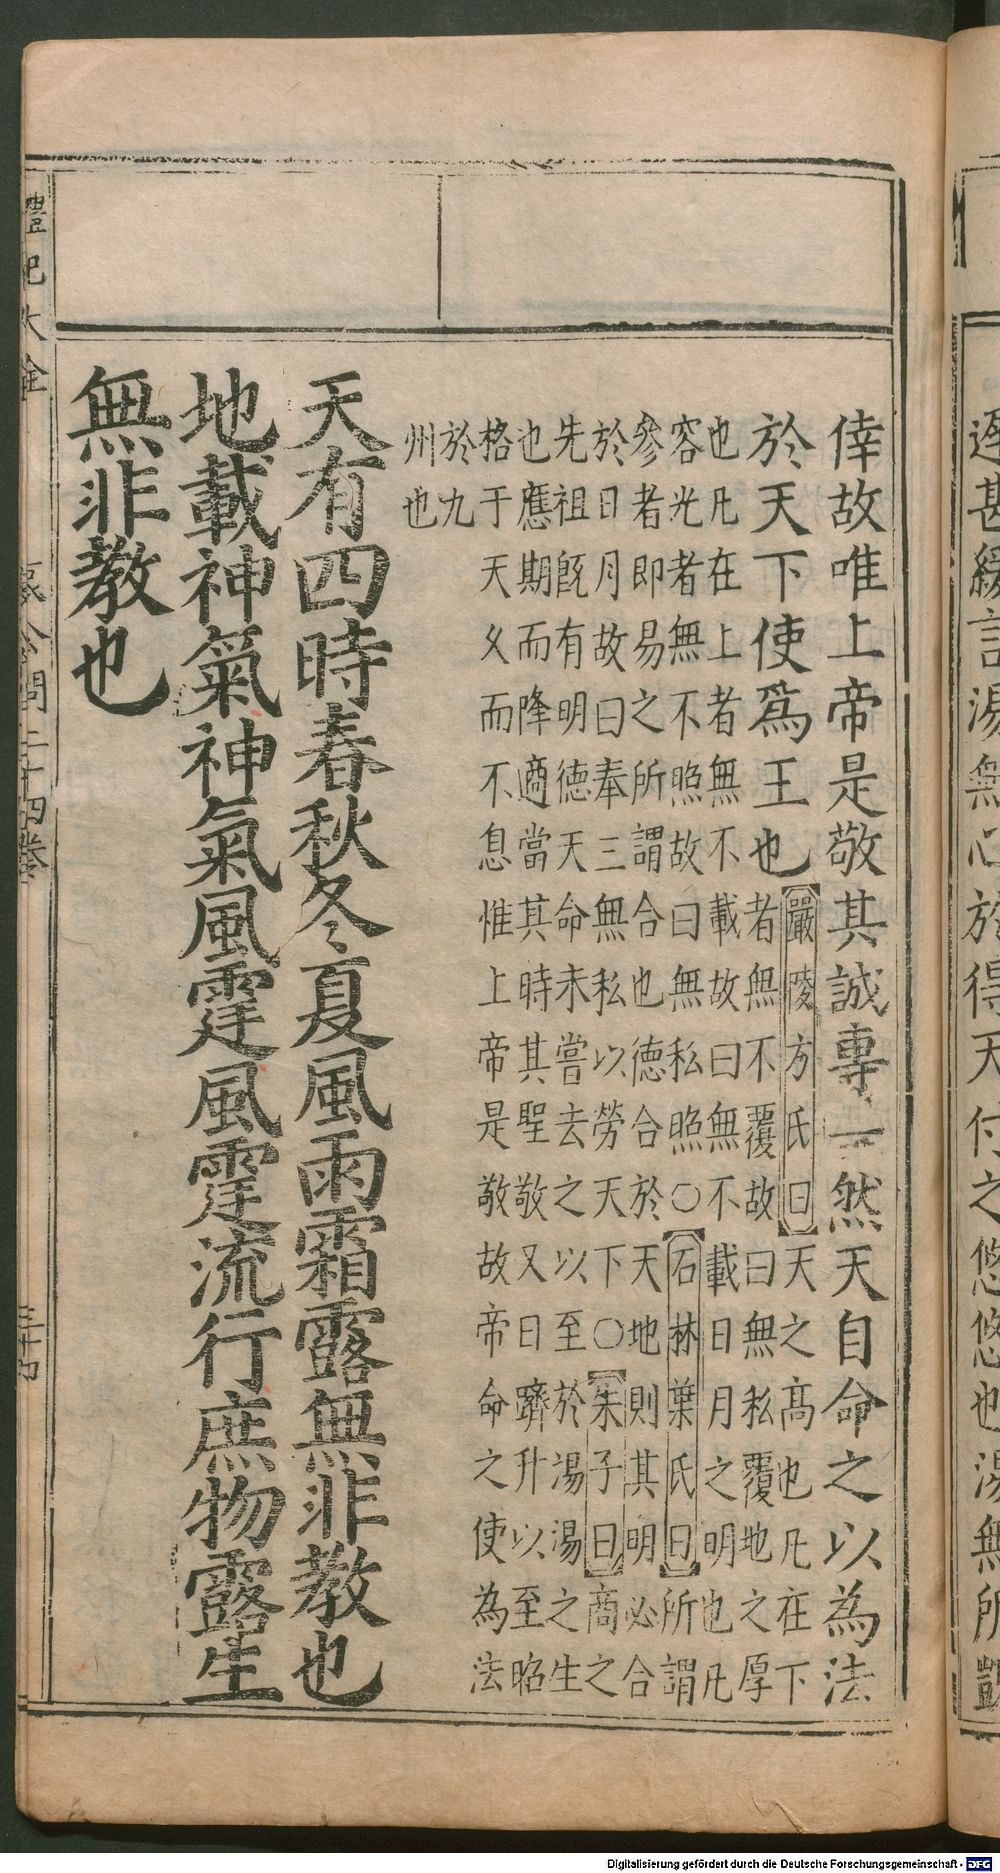 遲甚緩言湯無心於得天付之悠悠也湯無所覬
倖故唯上帝是敬其誠專一然天自命之以為法
於天下使爲王也【嚴陵方氏曰】天之高也凡在下
者無不覆故曰無私覆地之厚
也凡在上者無不載故曰無不載日月之明也凡
容光者無不照故曰無私照○【石林葉氏曰】所謂
參者即易之所謂合也德合於天地則其明必合
於日月故曰奉三無私以勞天下○【朱子曰】商之
先祖旣有明德天命未嘗去之以至於湯湯之生
也應期而降適當其時其聖敬又日躋升以至昭
格于天久而不息惟上帝是敬故帝命之使為法
於九
州也
天有四時春秋冬夏風雨霜露無非教也
地載神氣神氣風霆風霆流行庶物露生
無非教也
禮記大全
哀公問二十四卷
三十四
Digitalisierung gefördert durch die Deutsche Forschungsgemeinschaft - DFG